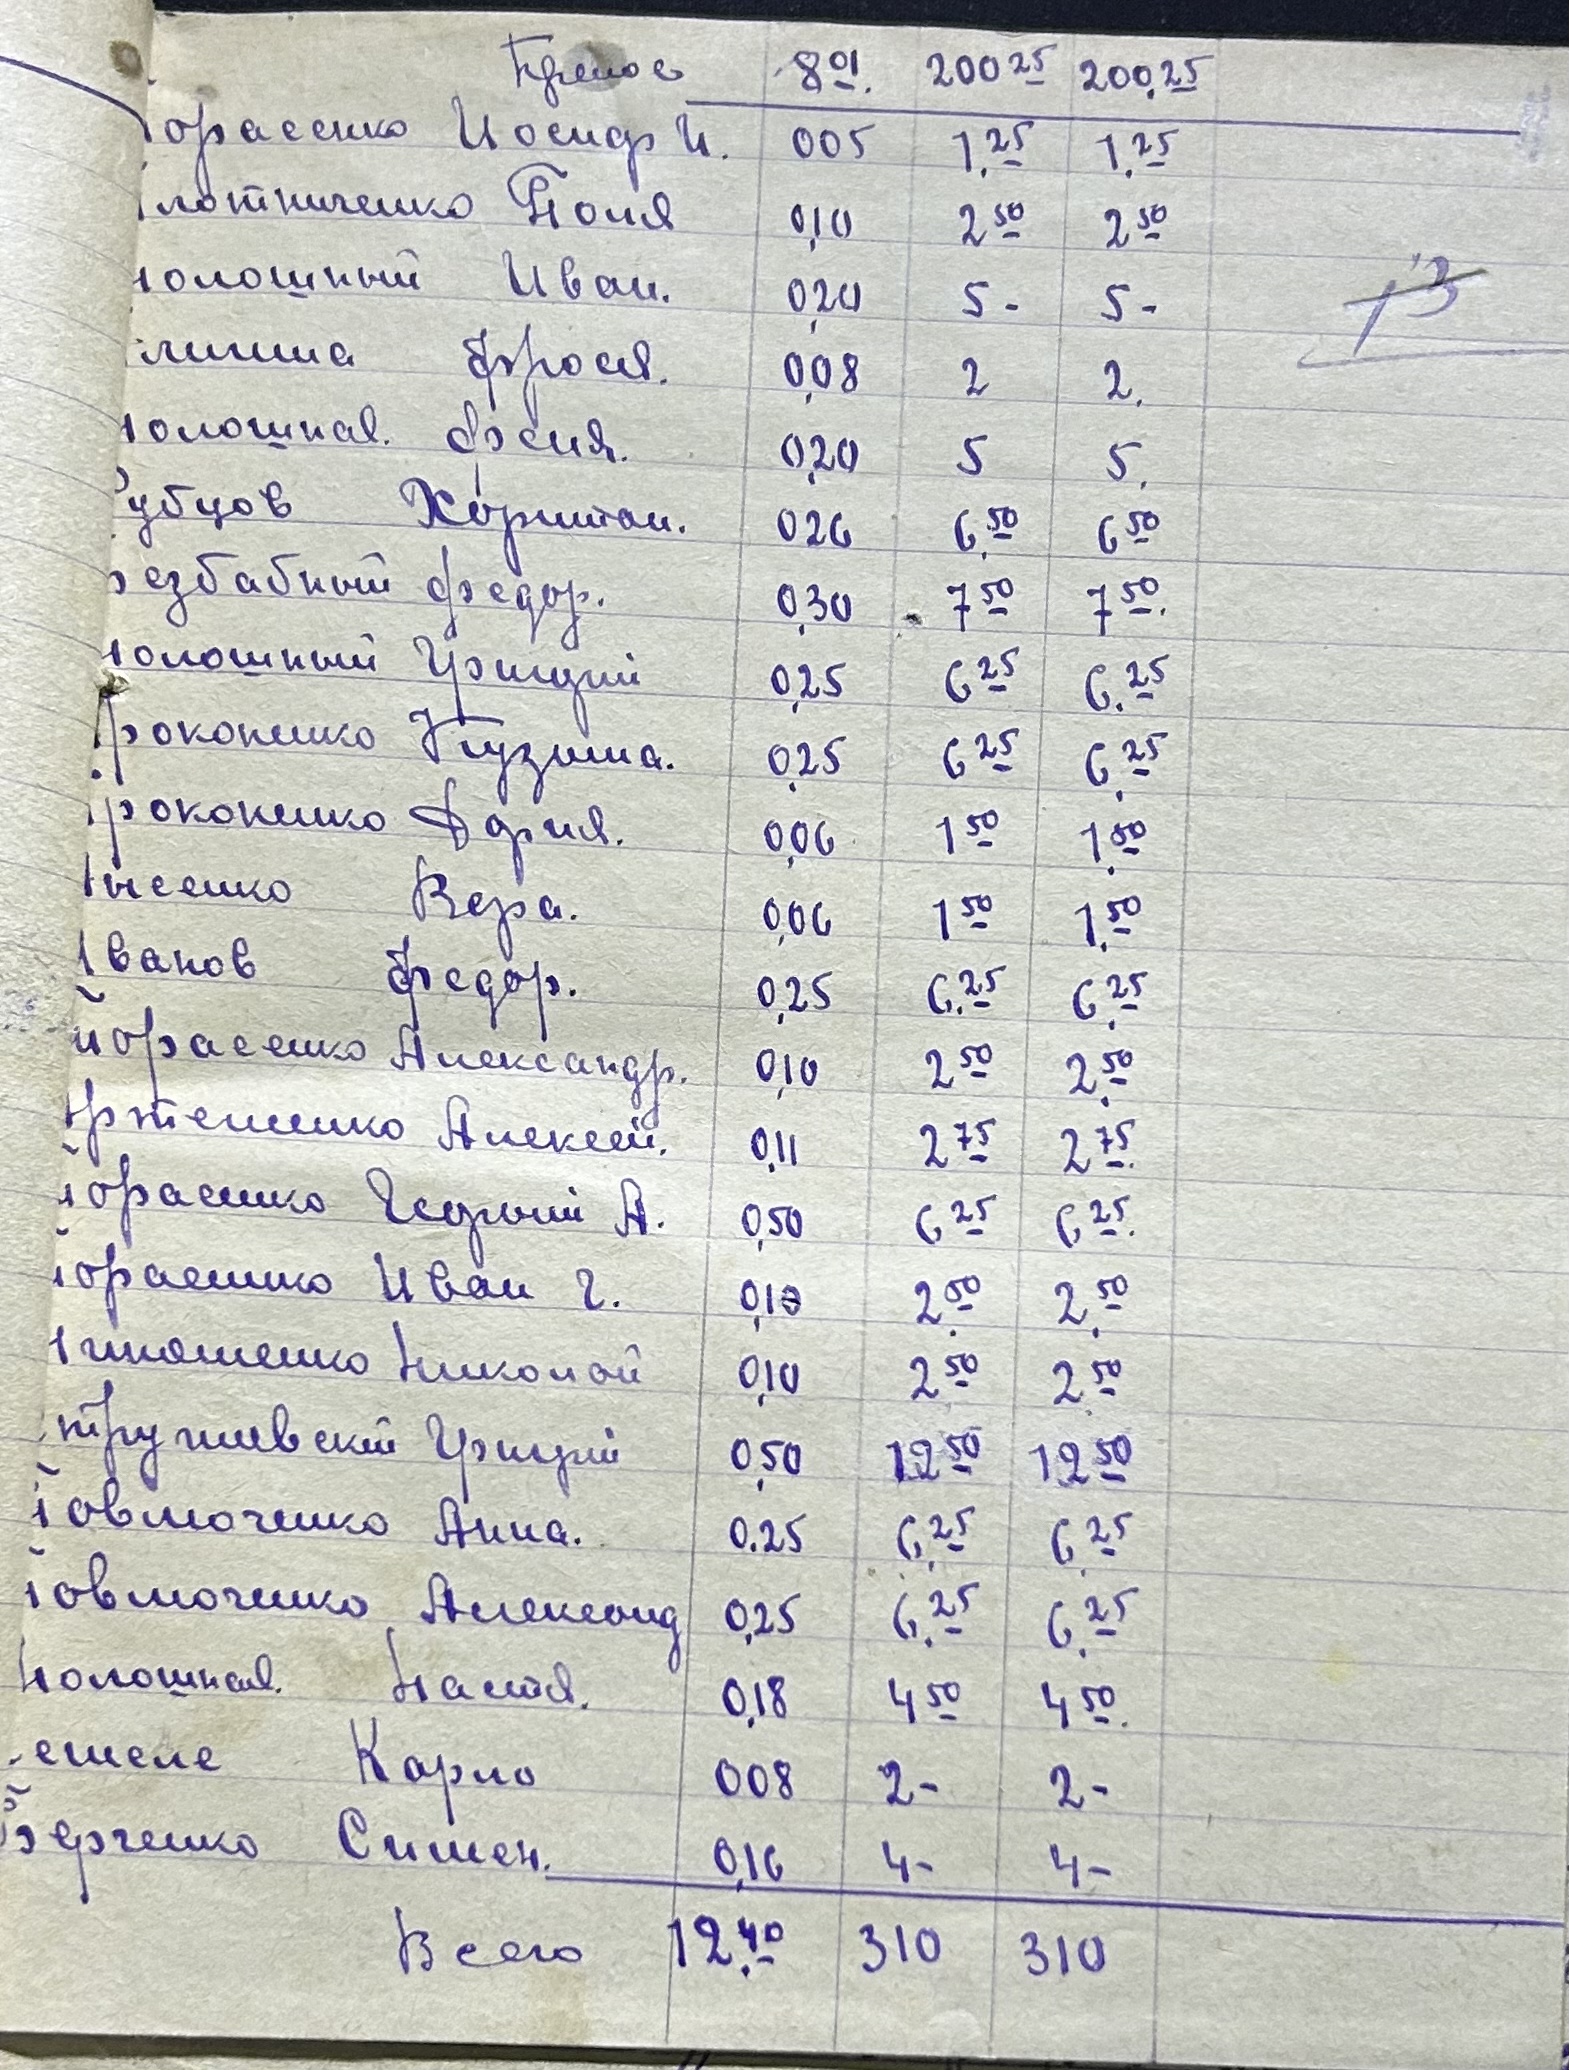 Перенос 8 01. 200 25 200.25
орасенко Иосиф И. 005 1.25 1.25
лотниченко Поля 0,10 2 50 2 50
олошный Иван. 0,20 5- 5-
13
Фрося. 0,08 2 2.
олошная. Феня. 0,20 5 5.
убцов Харитон. 026 6.50 6 50
езбабный Федор. 0,30 7 50 7 50.
олошный Григорий 0,25 6 25 6.25
рокопенко Кузьма. 0,25 6 25 6.25
рокопенко Дария. 0,06 1 50 1.50
ысенко Вера. 0,06 1 50 1.50
ванов Федор. 0,25 6.25 6.25
орасенко Александр. 0,10 2 50 2.50
ртеменко Алексей. 0,11 2 75 2 75.
орасенко Георгий А. 0,50 6 25 6 25.
орасенко Иван Г. 0,10 2.50 2.50
Николай 0,10 2 50 2 50
Григорий 0,50 12 50 12 50
овмоченко Анна. 0.25 6.25 6.25
овмоченко Александ 0,25 6.25 6.25
олошная. Настя. 0,18 4 50 4 50.
Карло 008 2- 2-
Симен. 0,16 4- 4-
Всего 12.40 310 310